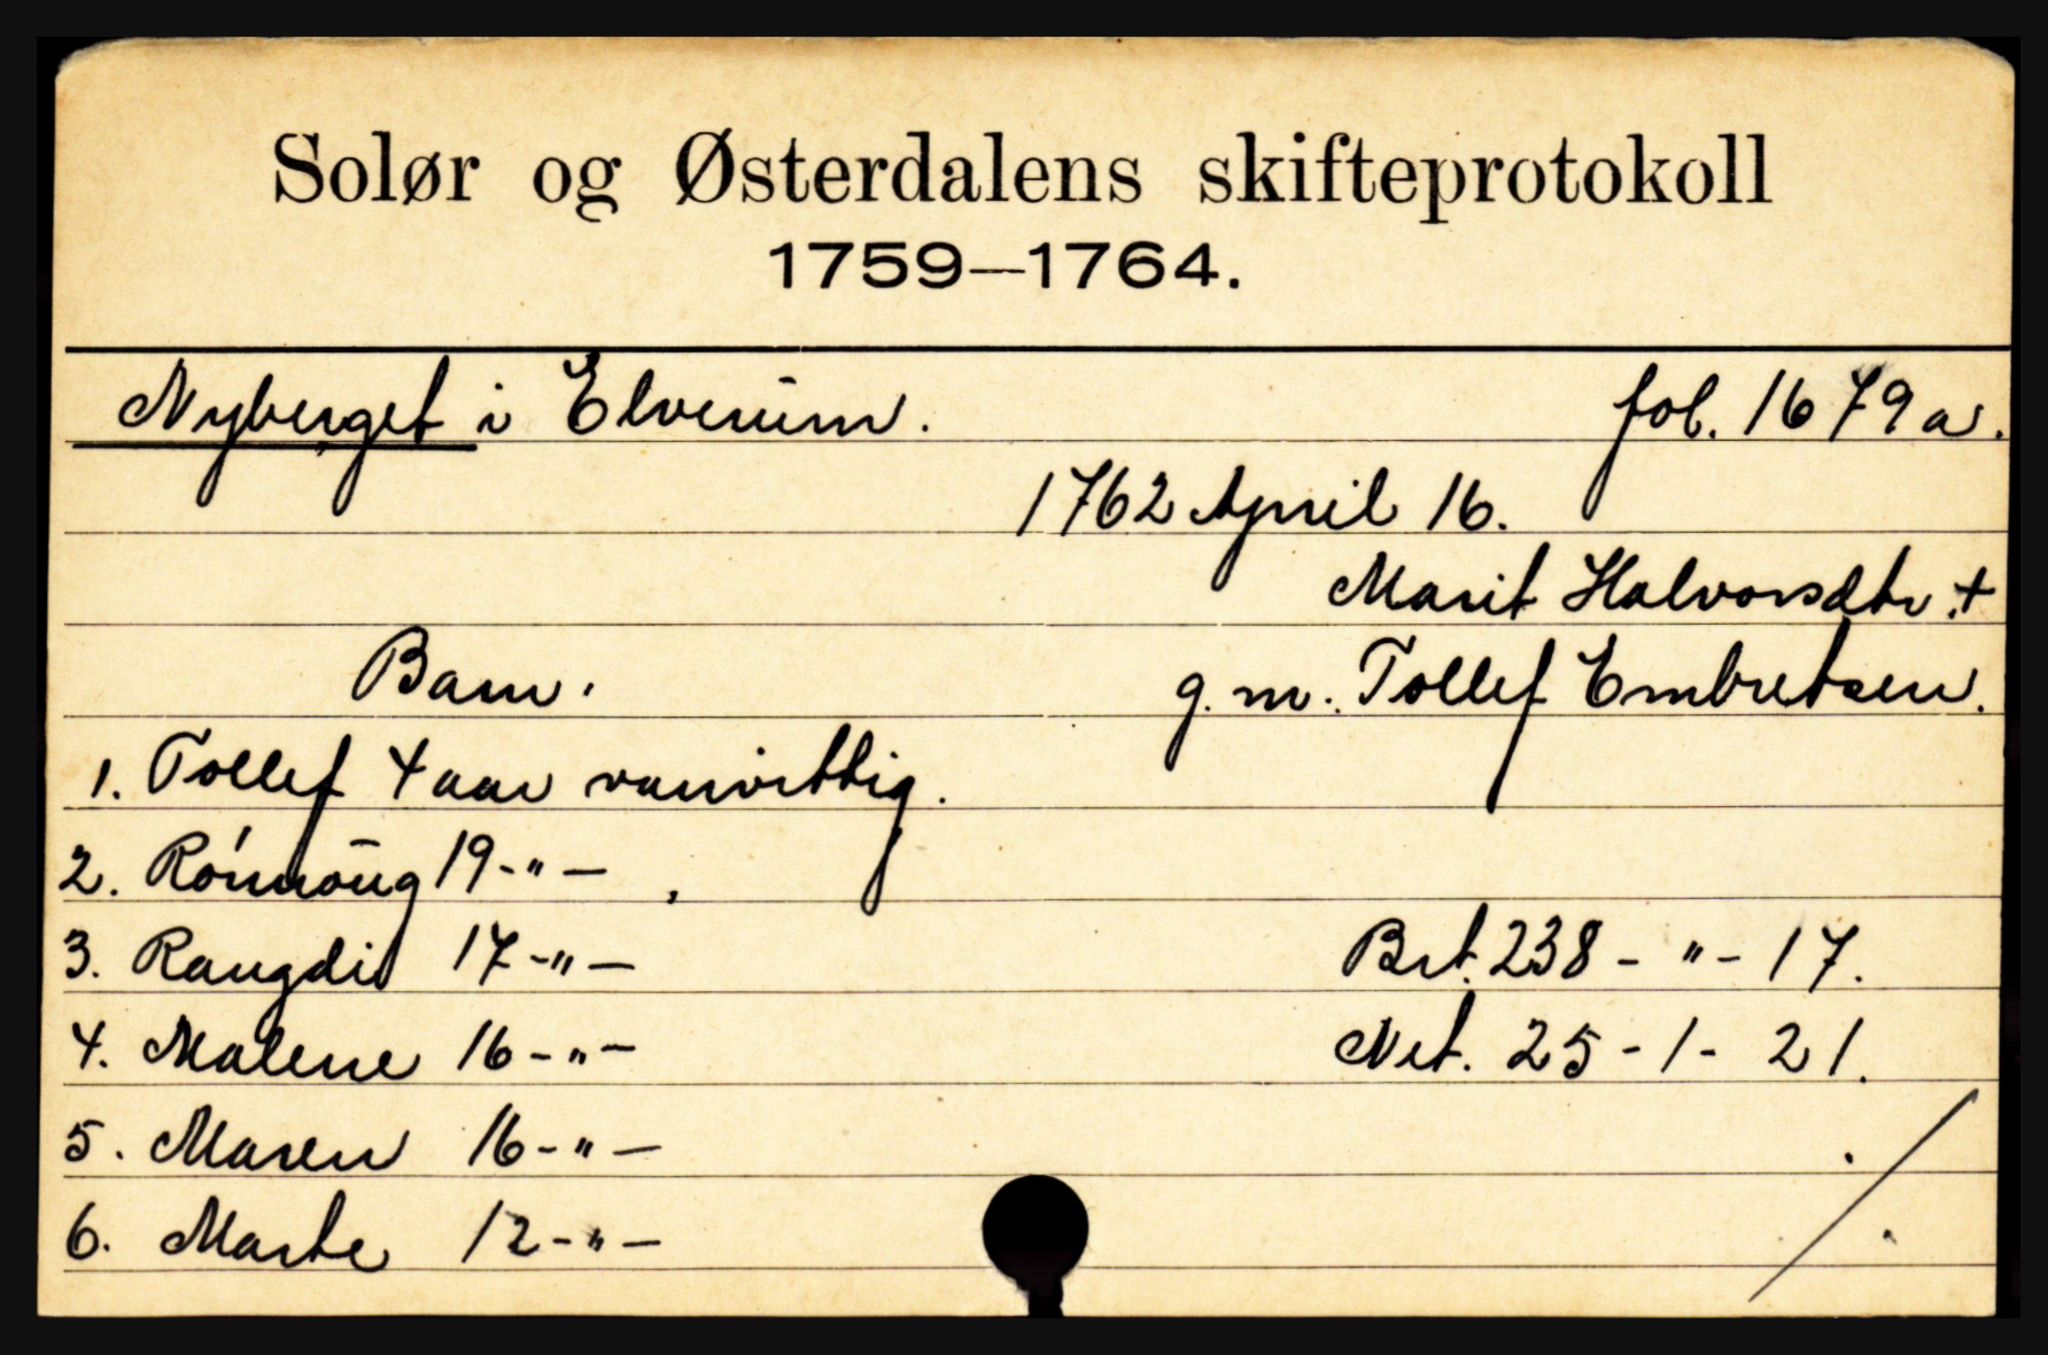 Solør og Østerdalens skifteprotokoll
1759—1764.
Nyberget i Elverum. fol. 1679a.
1762 April 16.
Marit Halvorsdtr. +
Barn. g. m. Tollef Embretsen.
1. Tollef 4 aar vanvittig.
2. Rónnoug 19 - " -
3. Rangdi 17 - " - Brt. 238 - " - 17.
4. Malene 16 - " - Net. 25 - 1 - 21.
5. Maren 16 - " -
6. Marte 12 - " - ./.